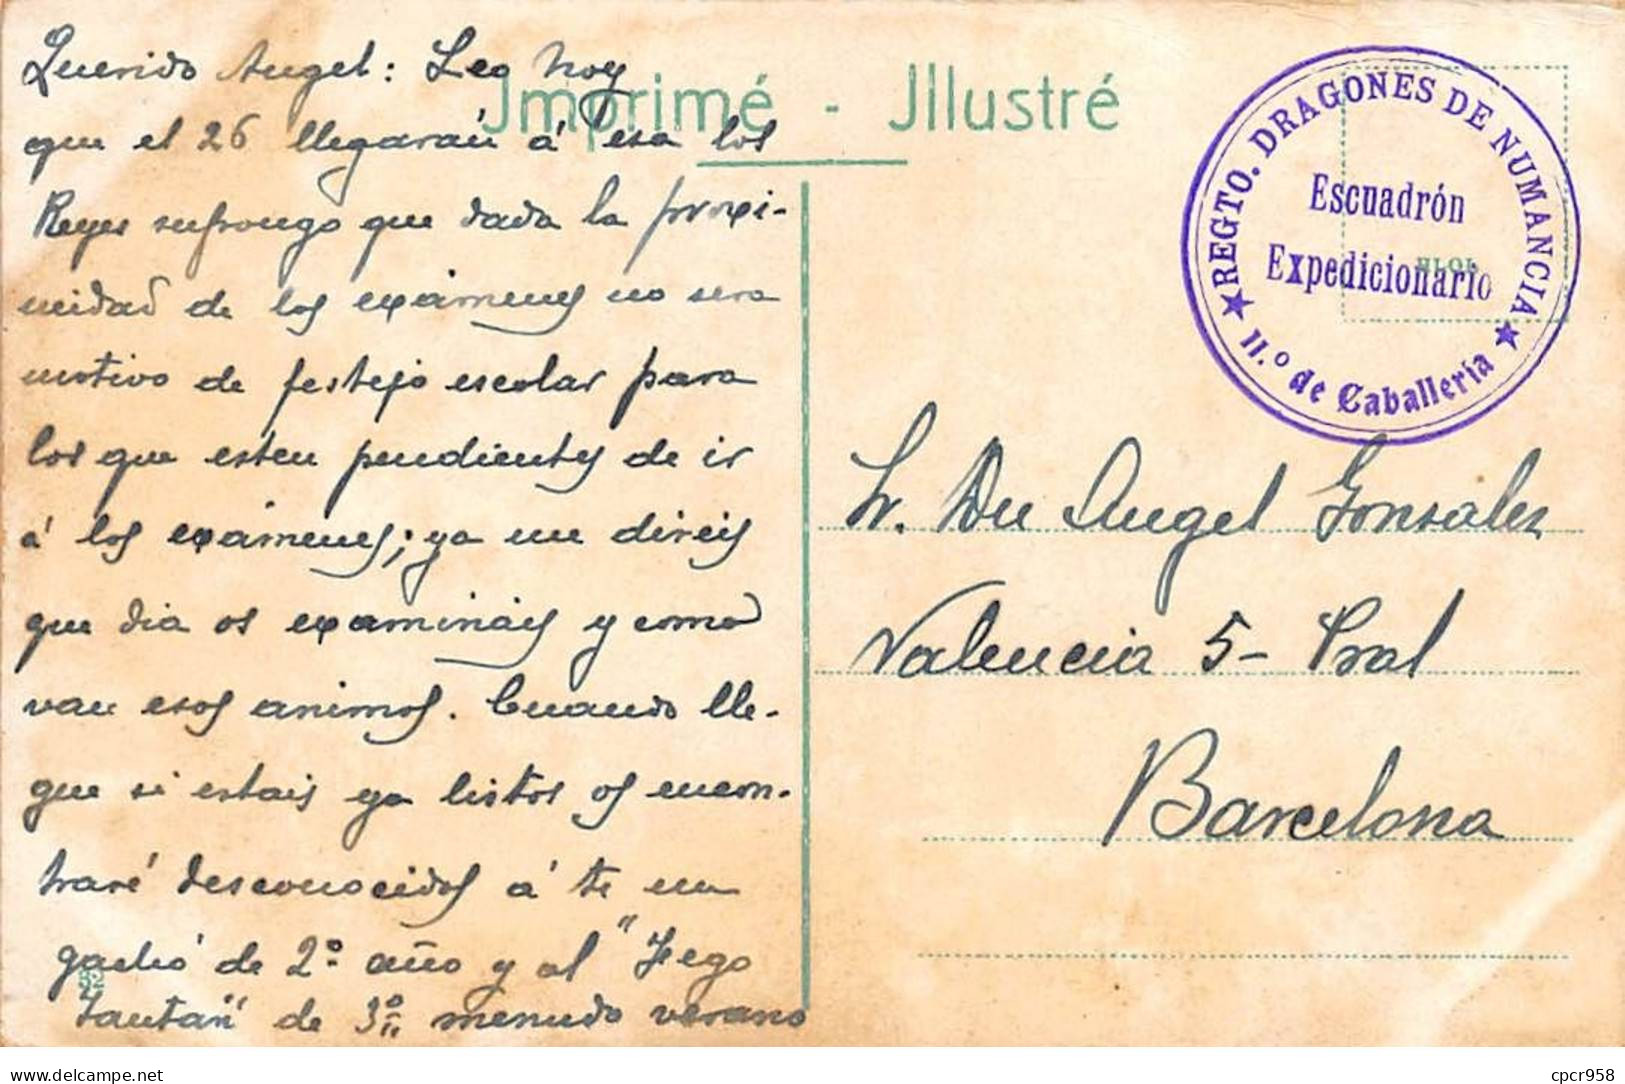 Imprimé - Illustré
Querido Angel: Leo hoy
que el 26 llegarán á esa los
Reyes supongo que dada la proxi-
midad de los exámenes no sera
motivo de festejo escolar para
los que esten pendientes de ir
á los exámenes; ya me direis
que dia os examináis y como
van esos animos. Cuando lle-
gue si estais ya listos os encon-
traré desconocidos á te un
de 2º año y al "
de 3º menudo verano
52
REGTO. DRAGONES DE NUMANCIA
Escuadrón
Expedicionario
★ 11.º de Caballeria ★
Sr. Dn Angel Gonsáles
Valencia 5 - Pral
Barcelona
cpcr958